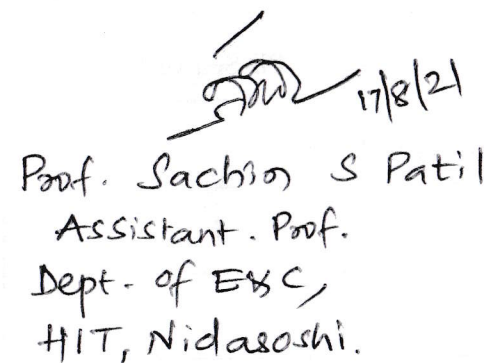 17/8/21
Prof. Sachin S Patil
Assistant. Prof.
Dept. of E&C,
HIT, Nidasoshi.